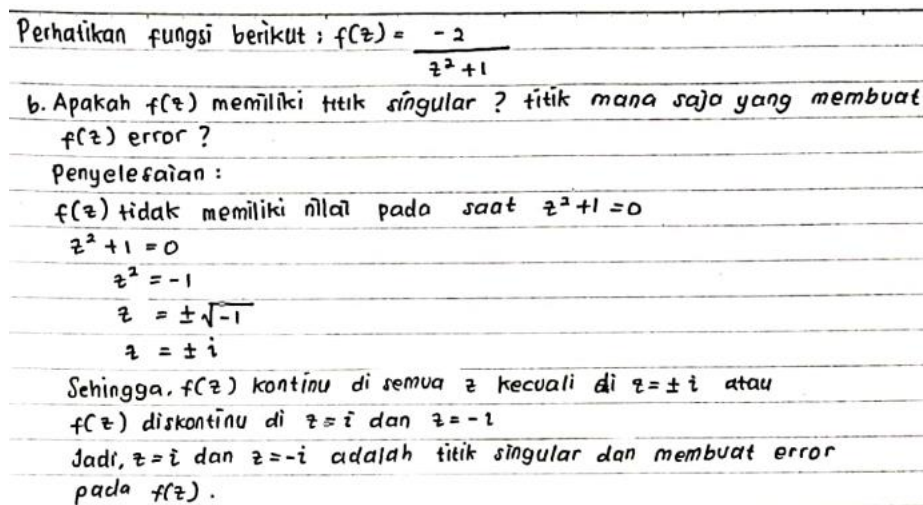 Perhatikan fungsi berikut : f(z) = -2
z² + 1
b. Apakah f(z) memiliki titik singular ? titik mana saja yang membuat
f(z) error ?
Penyelesaian :
f(z) tidak memiliki nilai pada saat z² + 1 = 0
z² + 1 = 0
z² = -1
z = ± √-1
z = ± i
Sehingga, f(z) kontinu di semua z kecuali di z = ± i atau
f(z) diskontinu di z = i dan z = -i
Jadi, z = i dan z = -i adalah titik singular dan membuat error
pada f(z).